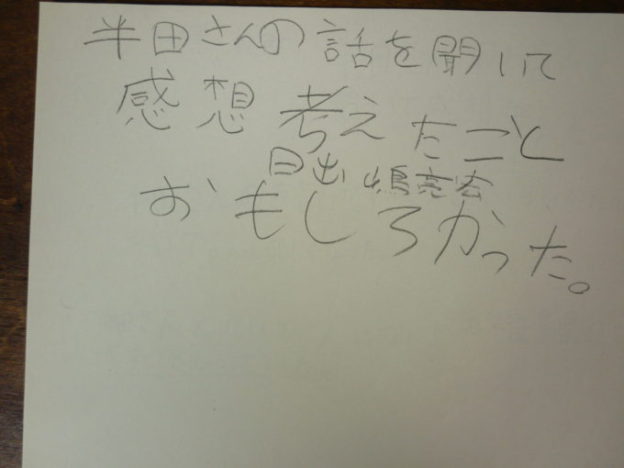 半田さんの話を聞いて
感想 考えたこと
日出嶋
おもしろかった。